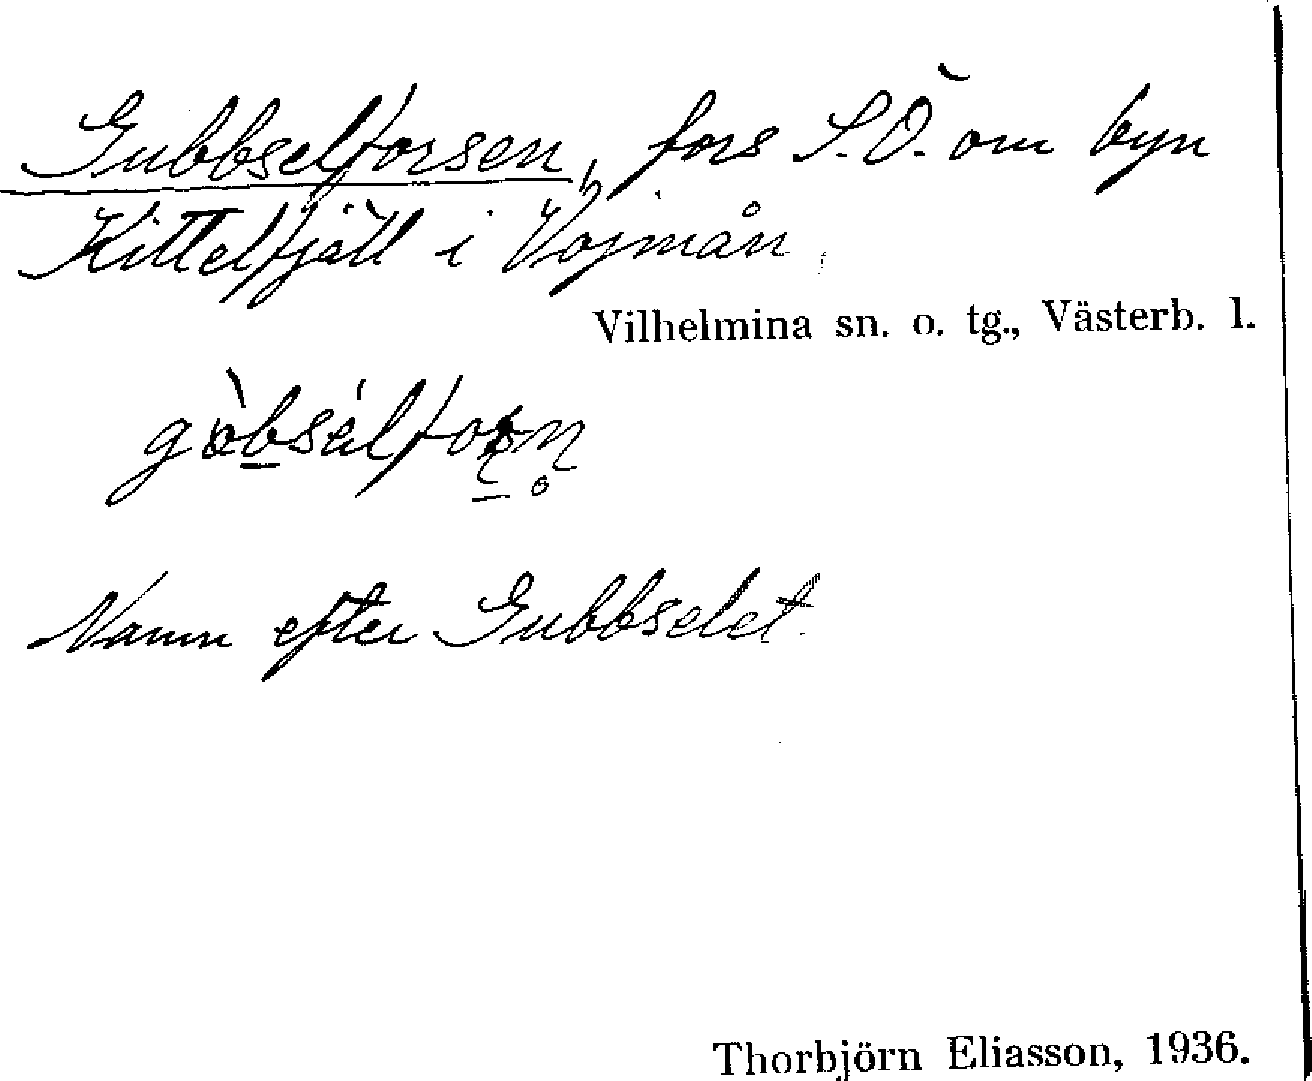 Gubbselforsen, fors S.Ö. om byn
Kittelfjäll i Vojmån.
Vilhelmina sn. o. tg., Västerb. l.
Namn efter Gubbselet.
Thorbjörn Eliasson, 1936.